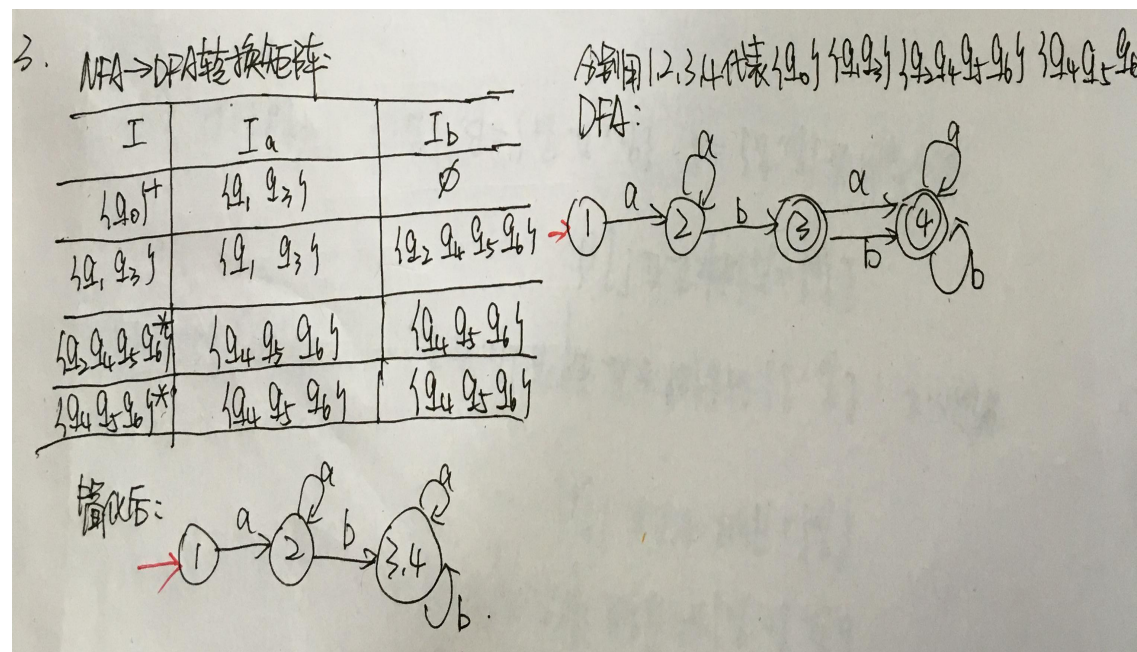 3. NFA→DFA转换矩阵:
I Ia Ib
{q0}+ {q1 q3} ∅
{q1 q3} {q1 q3} {q2 q4 q5 q6}
{q2 q4 q5 q6}* {q4 q5 q6} {q4 q5 q6}
{q4 q5 q6}* {q4 q5 q6} {q4 q5 q6}
分别用1,2,3,4代表{q0} {q1 q3} {q2 q4 q5 q6} {q4 q5 q6
DFA:
a a a
1 a 2 b 3 b 4 b
简化后:
a a
1 a 2 b 3,4 b